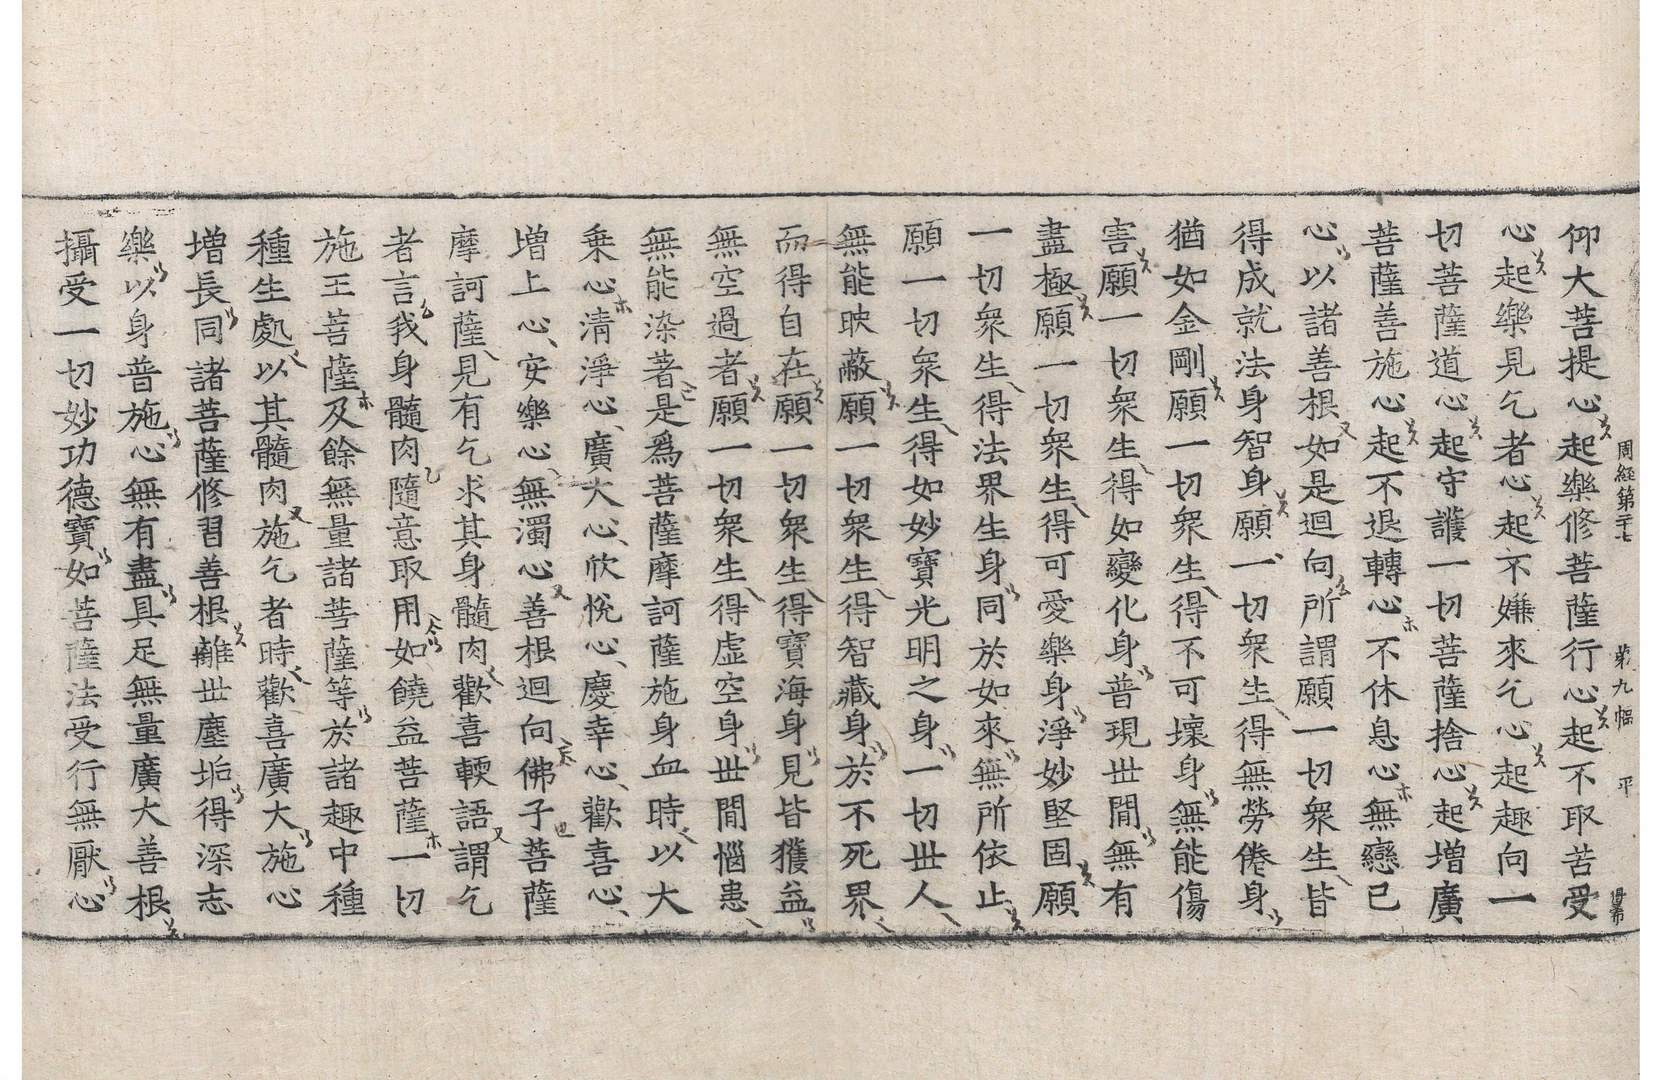 周經第二十七 第九幅 平
仰大菩提心起樂修菩薩行心起不取苦受
心起樂見乞者心起不嫌來乞心起趣向一
切菩薩道心起守護一切菩薩捨心起增廣
菩薩善施心起不退轉心不休息心無戀己
心以諸善根如是迴向所謂願一切衆生皆
得成就法身智身願一切衆生得無勞倦身
猶如金剛願一切衆生得不可壞身無能傷
害願一切衆生得如變化身普現世間無有
盡極願一切衆生得可愛樂身淨妙堅固願
一切衆生得法界生身同於如來無所依止
願一切衆生得如妙寶光明之身一切世人
無能映蔽願一切衆生得智藏身於不死界
而得自在願一切衆生得寶海身見皆獲益
無空過者願一切衆生得虛空身世間惱患
無能染著是爲菩薩摩訶薩施身血時以大
乗心清淨心廣大心欣悅心慶幸心歡喜心
增上心安樂心無濁心善根迴向佛子菩薩
摩訶薩見有乞求其身髓肉歡喜輭語謂乞
者言我身髓肉隨意取用如饒益菩薩一切
施王菩薩及餘無量諸菩薩等於諸趣中種
種生處以其髓肉施乞者時歡喜廣大施心
增長同諸菩薩修習善根離世塵垢得深志
樂以身普施心無有盡具足無量廣大善根
攝受一切妙功德寶如菩薩法受行無厭心